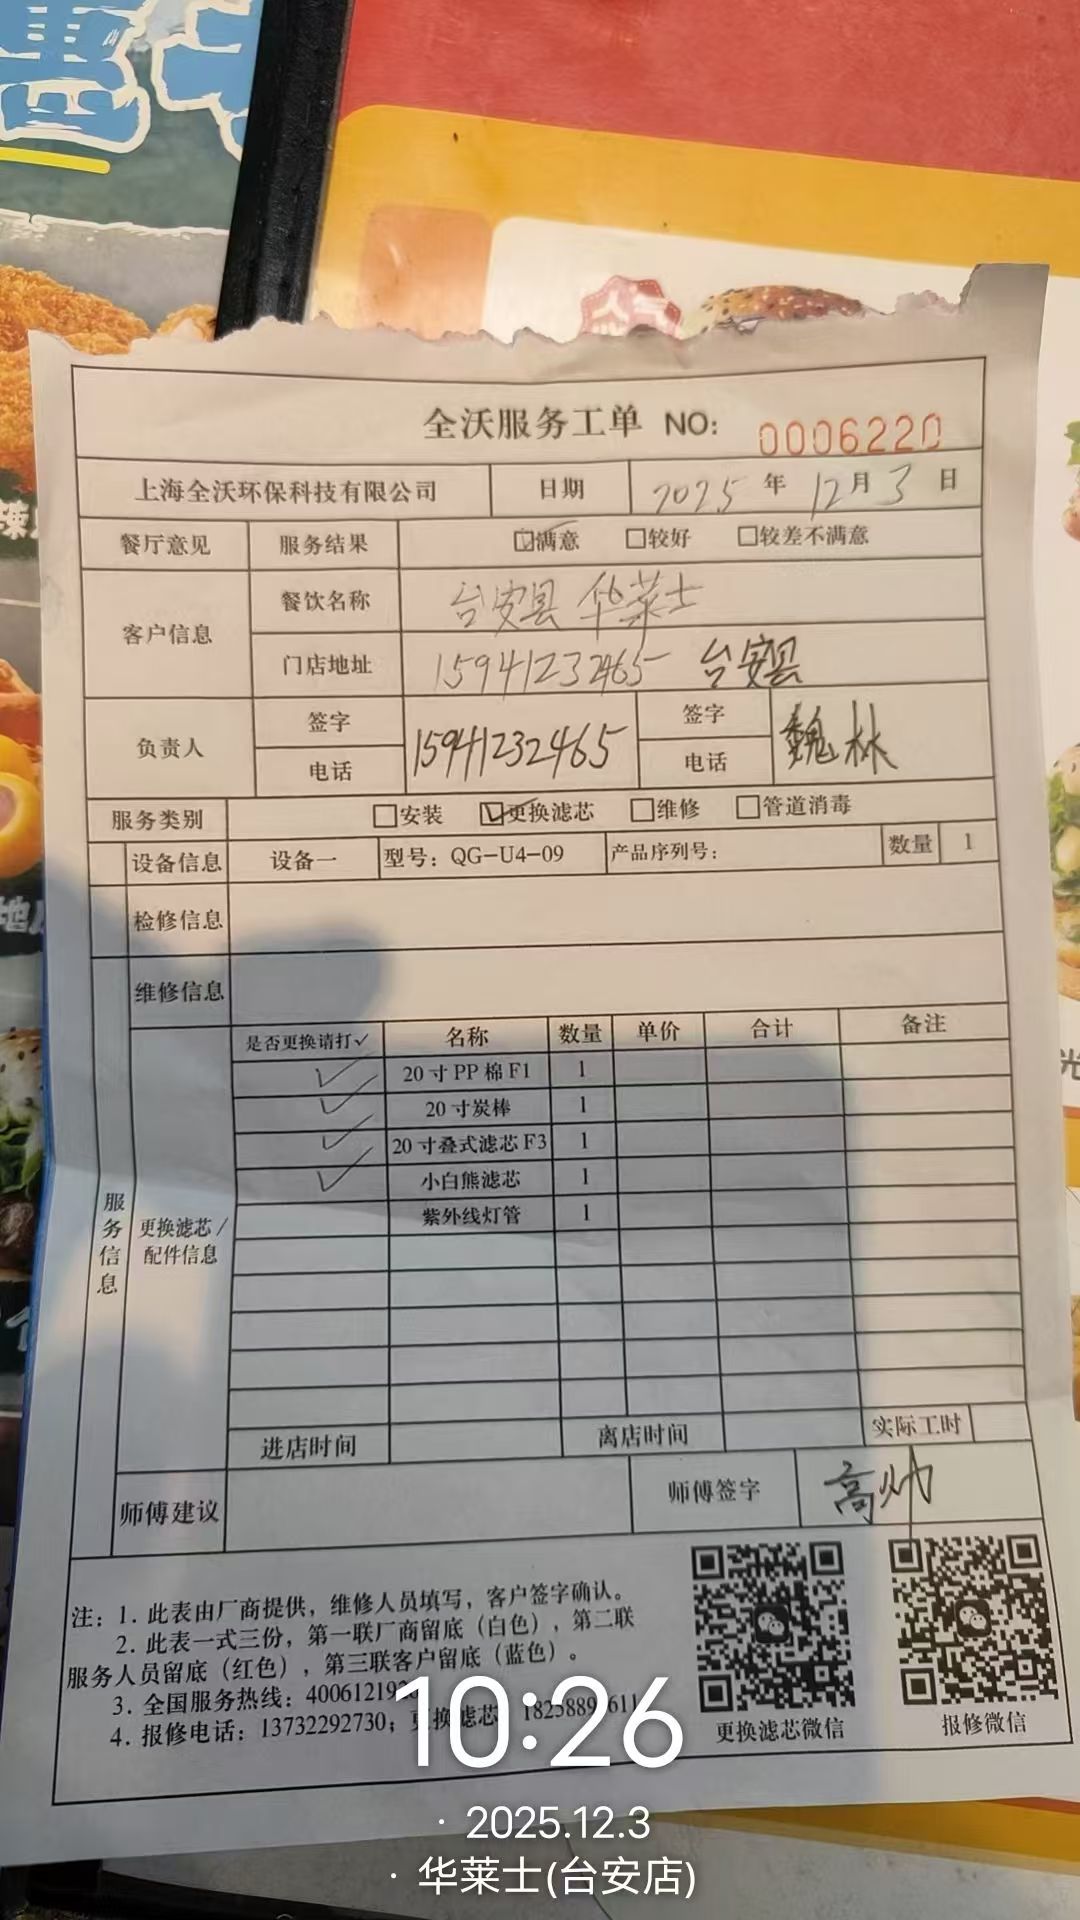 全沃服务工单 NO: 0006220
上海全沃环保科技有限公司 日期 2025 年 12 月 3 日
餐厅意见 服务结果 ☑满意 □较好 □较差不满意
客户信息 餐饮名称 台安县 华莱士
门店地址 15941232465 台安县
负责人 签字 电话 15941232465 签字 电话 魏林
服务类别 □安装 ☑更换滤芯 □维修 □管道消毒
设备信息 设备一 型号：QG-U4-09 产品序列号： 数量 1
检修信息
维修信息
服务信息
更换滤芯/配件信息
是否更换请打✓ 名称 数量 单价 合计 备注
✓ 20寸PP棉F1 1
✓ 20寸炭棒 1
✓ 20寸叠式滤芯F3 1
✓ 小白熊滤芯 1
紫外线灯管 1
进店时间 离店时间 实际工时
师傅建议 师傅签字 高帅
注：1. 此表由厂商提供，维修人员填写，客户签字确认。
2. 此表一式三份，第一联厂商留底（白色），第二联
服务人员留底（红色），第三联客户留底（蓝色）。
3. 全国服务热线：
4. 报修电话：13732292730；更换滤芯
更换滤芯微信 报修微信
10:26
· 2025.12.3
· 华莱士(台安店)